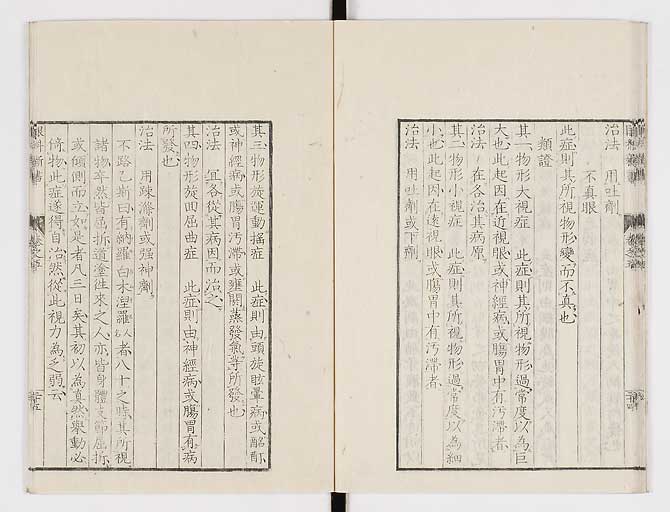 治法 用吐劑
不真眼
此症則其所視物形變而不真也
類證
其一物形大視症 此症則其所視物形過常度以為巨
大也此起因在近視眼或神經病或腸胃中有汚滯者
治法 在各治其病原
其二物形小視症 此症則其所視物形過常度以為細
小也此起因在遠視眼或腸胃中有汚滯者
治法 用吐劑或下劑
其三物形旋運動搖症 此症則由頭旋眩暈病或酩酊
或神經病或腸胃汚滯或壅閉蒸發氣等所發也
治法 宜各從其病因而治之
其四物形旋回屈曲症 此症則由神經病或腸胃有病
所發也
治法 用疎滌劑或强神劑
不路乙斯曰有納羅白木涅羅人名者八十之時其所視
諸物卒然皆屈折道塗往來之人亦皆身體支節屈折
或傾側而立如是者八三日矣其初以為真然舉動必
倚物此症遂得自治然從此視力為之弱云
眼科新書